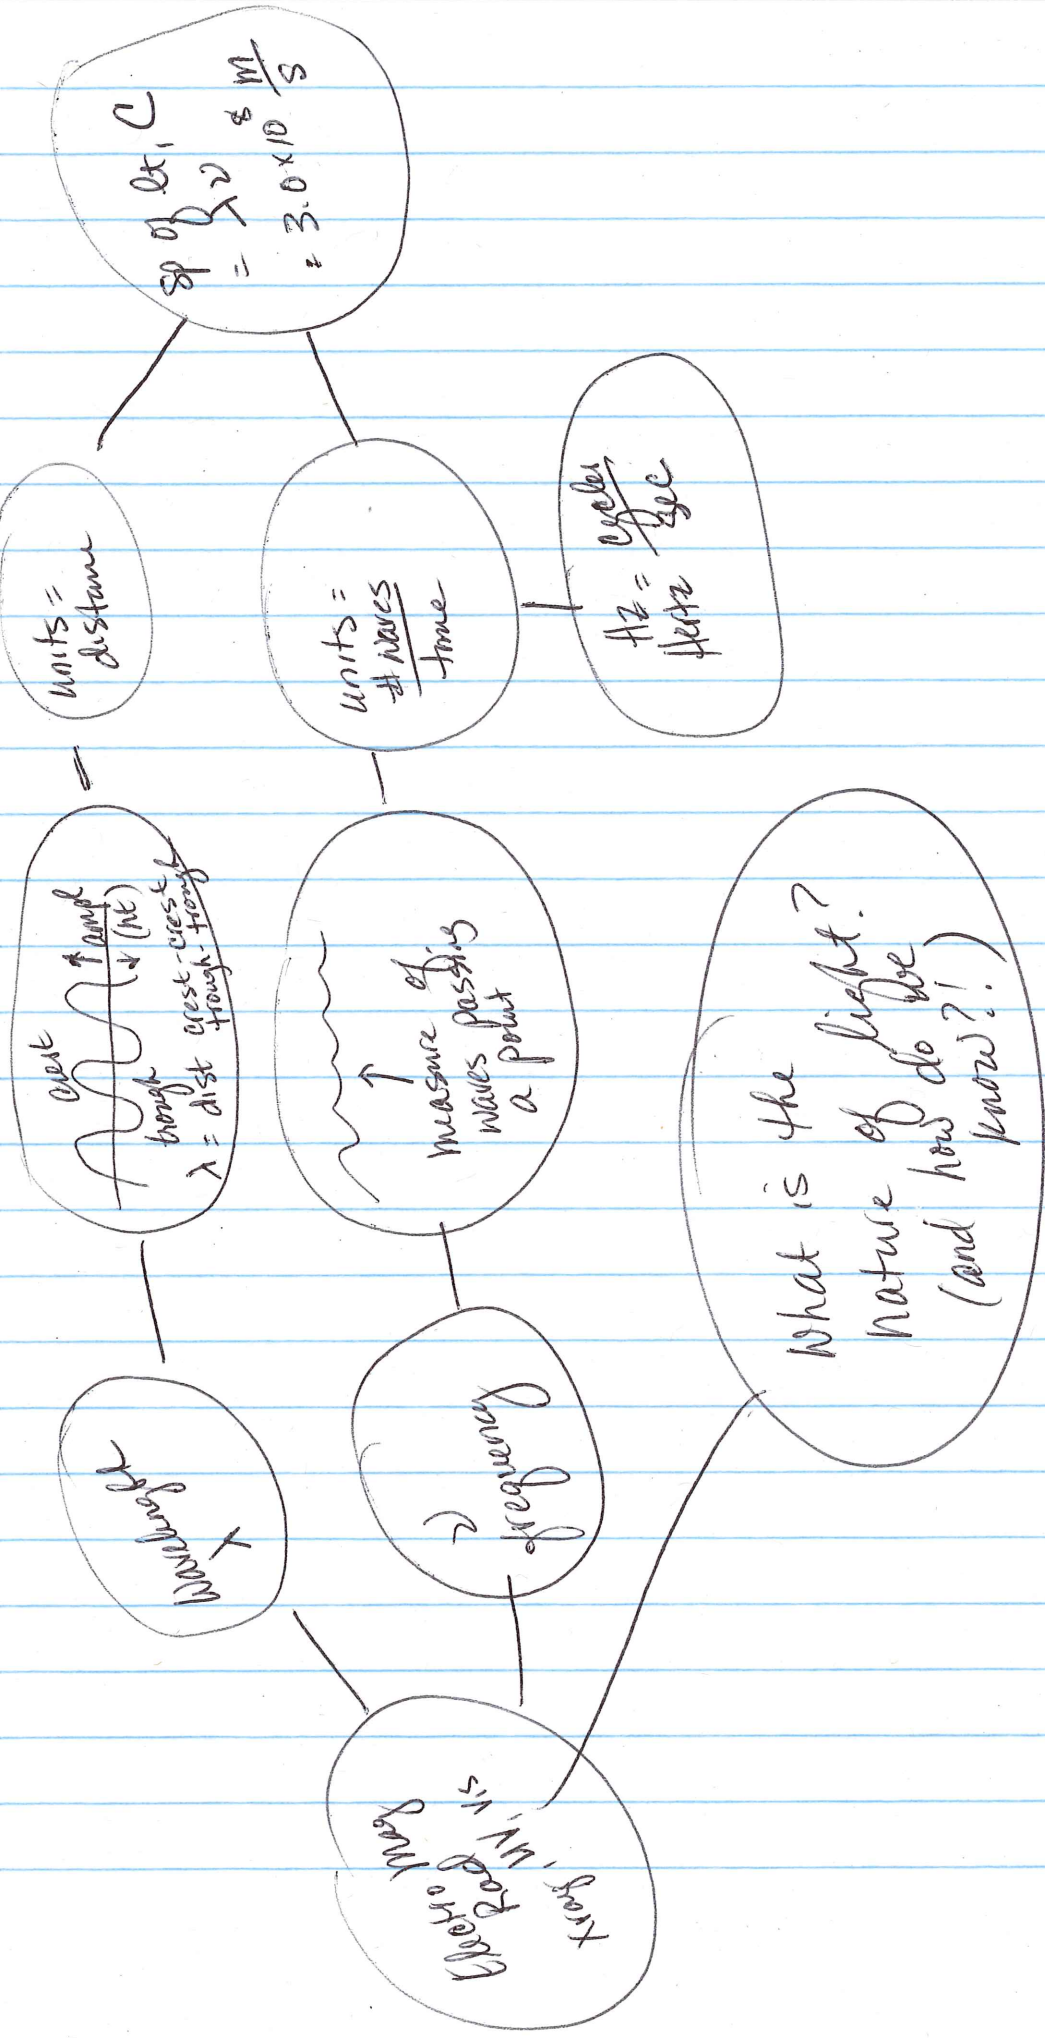 Electro Mag
Rad
Xray, UV, Vis
Wavelength
λ
ν
frequency
crest
trough
ampl
(ht)
λ = dist crest-crest
trough-trough
measure of
waves passing
a point
units =
distance
units =
# waves
time
Hz = cycles
Hertz sec
Sp of lt, C
= λν
= 3.0 x 10⁸ m
s
What is the
nature of light?
(and how do we
know?!)